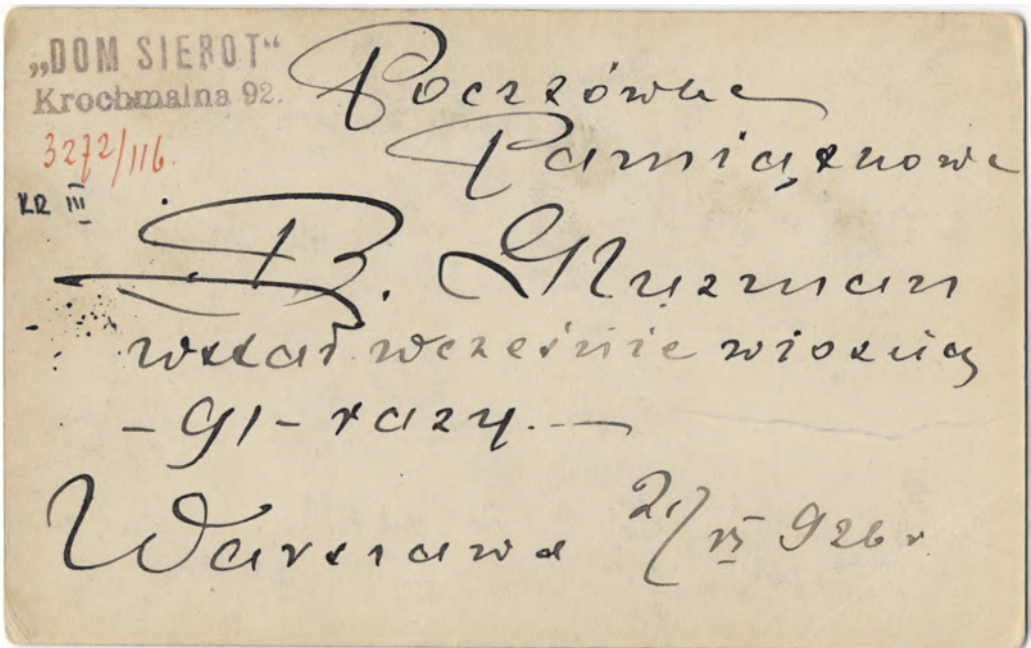 „DOM SIEROT“
Krochmalna 92.
3272/116.
KR III
Pocztówka
Pamiątkowa
B. Gluzman
wstał wcześnie wiosną
-91- razy.—
Warszawa 21/VI 926 r